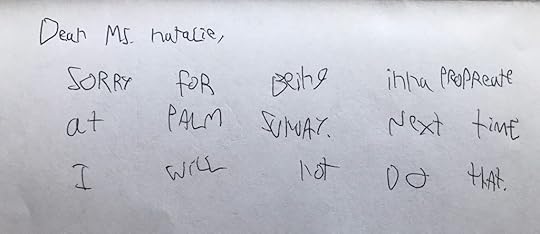 Dear Ms. natalie,
SORRY FOR BEing inna PROPReate
at PALM SUNDAY. Next time
I will not DO tHAt.